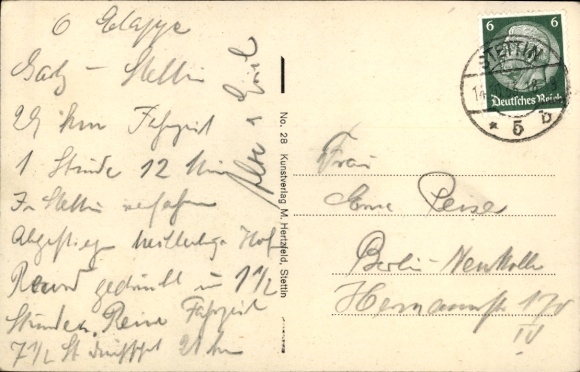 6 Etappe
Gartz – Stettin
29 km Fahrzeit
1 Stunde 12 Min
In Stettin verfahren
Abgestiegen Hof
gedrückt in 1 1/2
Stunden. Reine Fahrzeit
7 1/2 St 21 km
No. 28 Kunstverlag M. Hertzfeld, Stettin
6 6
Deutsches Reich
STETTIN
14
* 5 b
Frau
Erna
Berlin-Neukölln
Hermannstr 170
IV